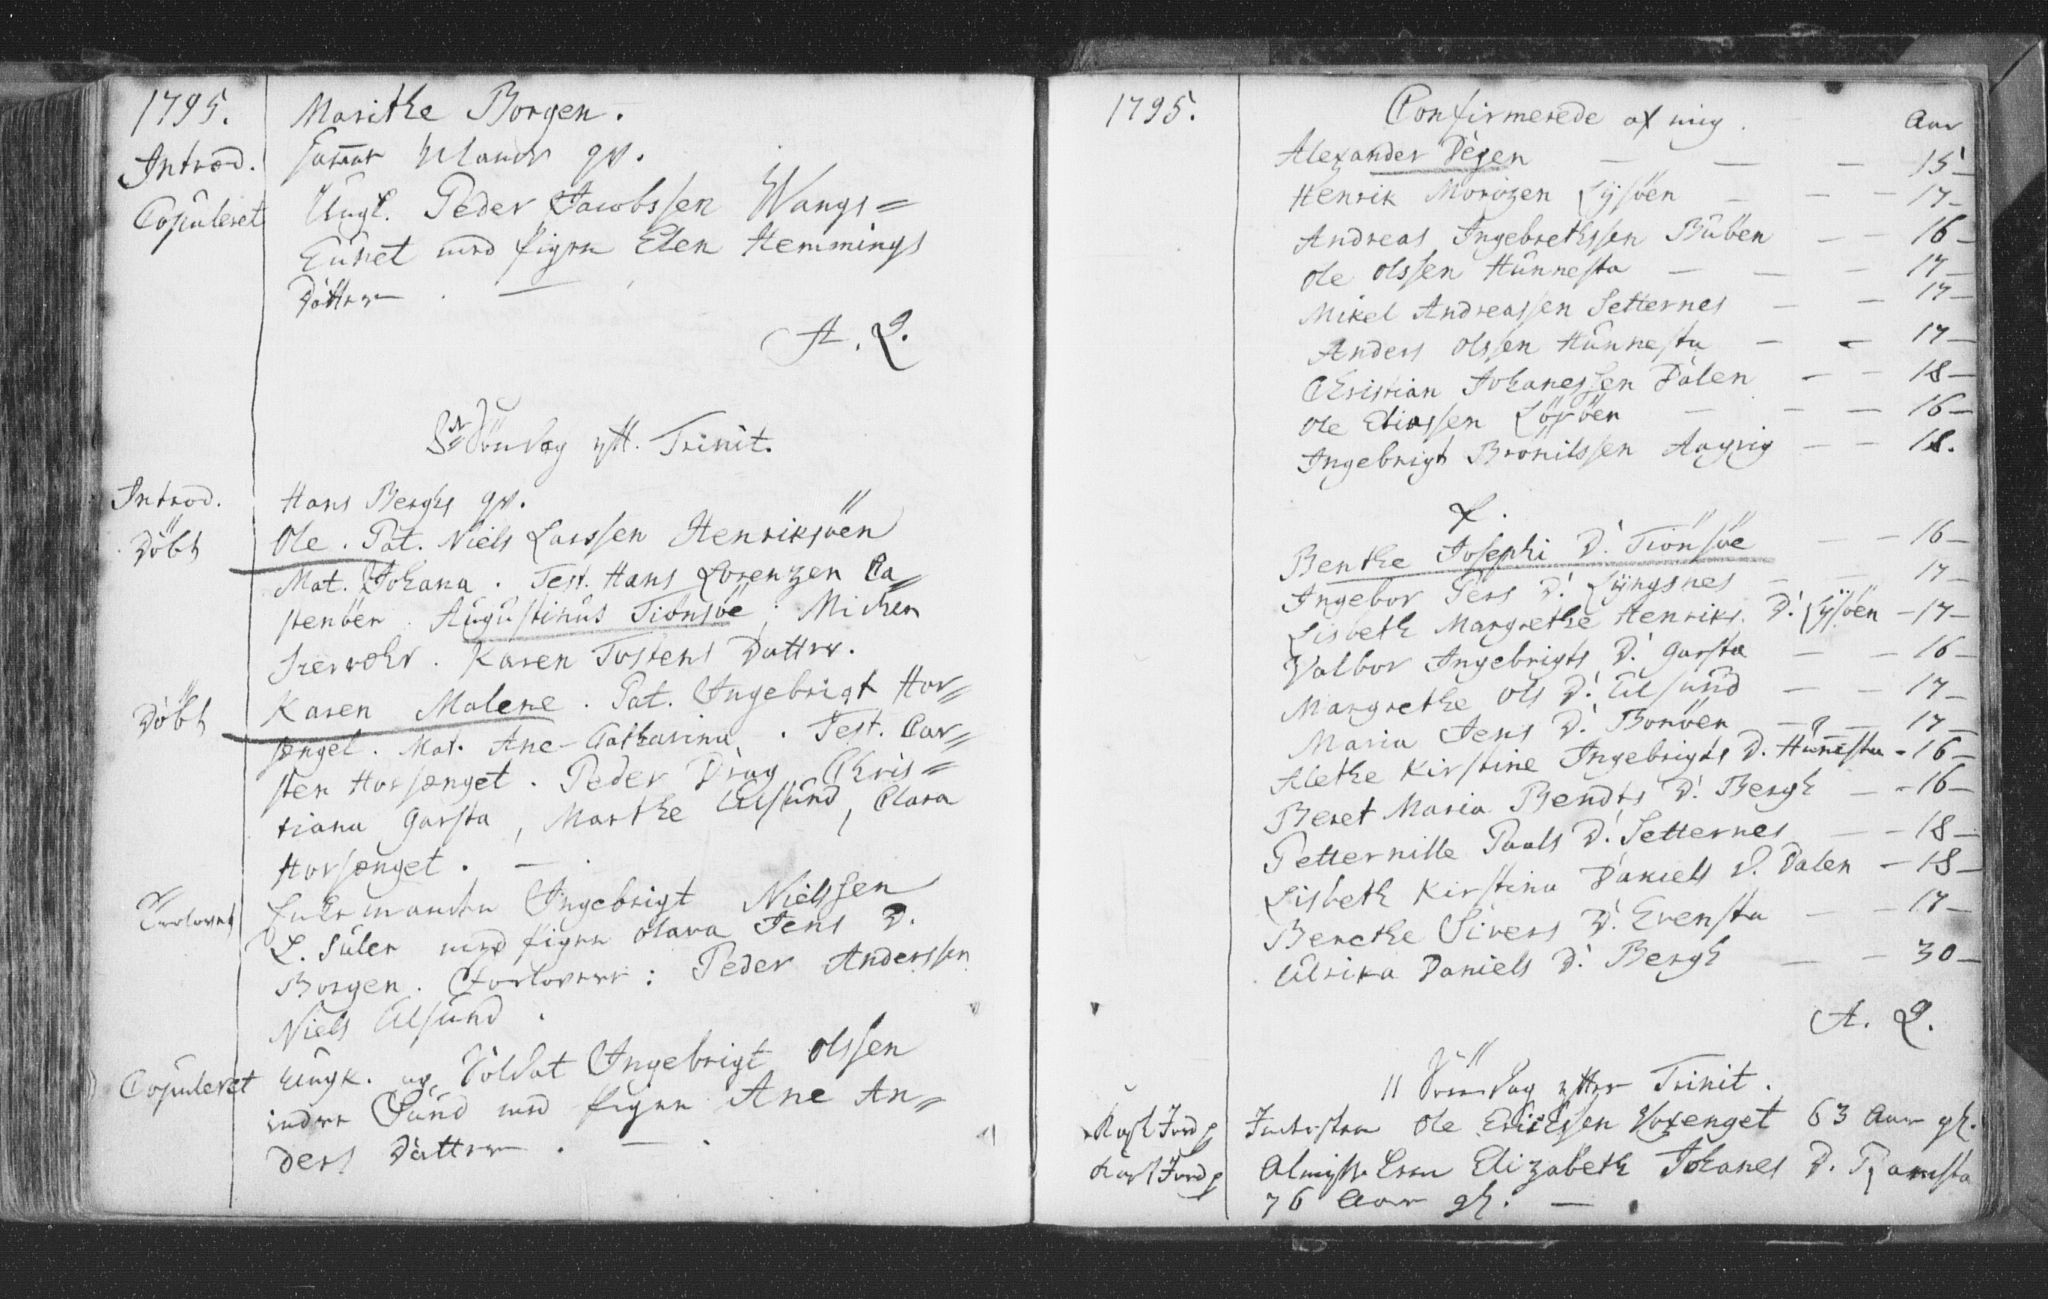 1795.
Marithe Borgen.
Introd.
Copuleret Ungk. Peder Jacobssen Wangs=
Eünet med Pigen Elen Hemmings
Datter.
A. L.
Söndag eft. Trinit.
Introd. Hans Berghs qv.
Döbt Ole. Pat. Niels Larssen Henriksöen
Mat. Johana. Test. Hans Lorenzen Ca=
stenöen. Augustinus Tiönsöe, Michen
Karen Tostens Datter.
Döbt Karen Malene. Pat. Ingebrigt Hor=
sænget. Mat. Ane Catharina. Test. Car=
sten Horsænget. Peder Drag Chris=
tiana Garsta, Marthe Ulsünd, Clara
Horsænget. —
Trolovet Enkemanden Ingebrigt Nielssen
L. Sülen med Pigen Clara Jens D.
Borgen. Forlovere: Peder Anderssen
Niels Ulsünd.
Copuleret Ungk. og Soldat Ingebrigt Olssen
indre Sünd med Pigen Ane An=
ders Datter. —
1795.
Confirmerede af mig. Aar
Alexander Degen — — — 15 —
Henrik Morizen Lysöen — — — 17 —
Andreas Ingebrethssen Büben — — 16 —
Ole Olssen Hünnesta — — — 17 —
Mikel Andreassen Setternes — — 17 —
Anders Olssen Hünnesta — — 17 —
Christian Johanessen Dalen — — 18 —
Ole Eliassen Löfsöen — — — 16 —
Ingebrigt Bronilssen Aagvig — — 18.
Benthe Josephi D. Tiönsöe — — 16 —
Ingebor Pers D. Lyngsnes — — 17 —
Lisbeth Margrethe Henriks. D. Lysöen — 17 —
Valbor Ingebrigts D. Garsta — — 16 —
Margrethe Ols D. Ulsünd — — 17 —
Maria Jens D. Bonöen — — 17 —
Alethe Kirstine Ingebrigts D. Hünesta - 16 —
Beret Maria Bendts D. Bergh — - 16 —
Petternille Pauls D. Setternes — — 18 —
Lisbeth Kirstina Daniels D. Dalen — 18 —
Berethe Sivers D. Evensta — — 17 —
Ulrika Daniels D. Bergh — — 30 —
A. L.
11 Söndag efter Trinit.
Kast Jord p Indersten Ole Erichsen Voxenget 63 Aar gl.
Kast Jord p Almisse Lem Elizabeth Johanes D. Ramsta
76 Aar gl. —